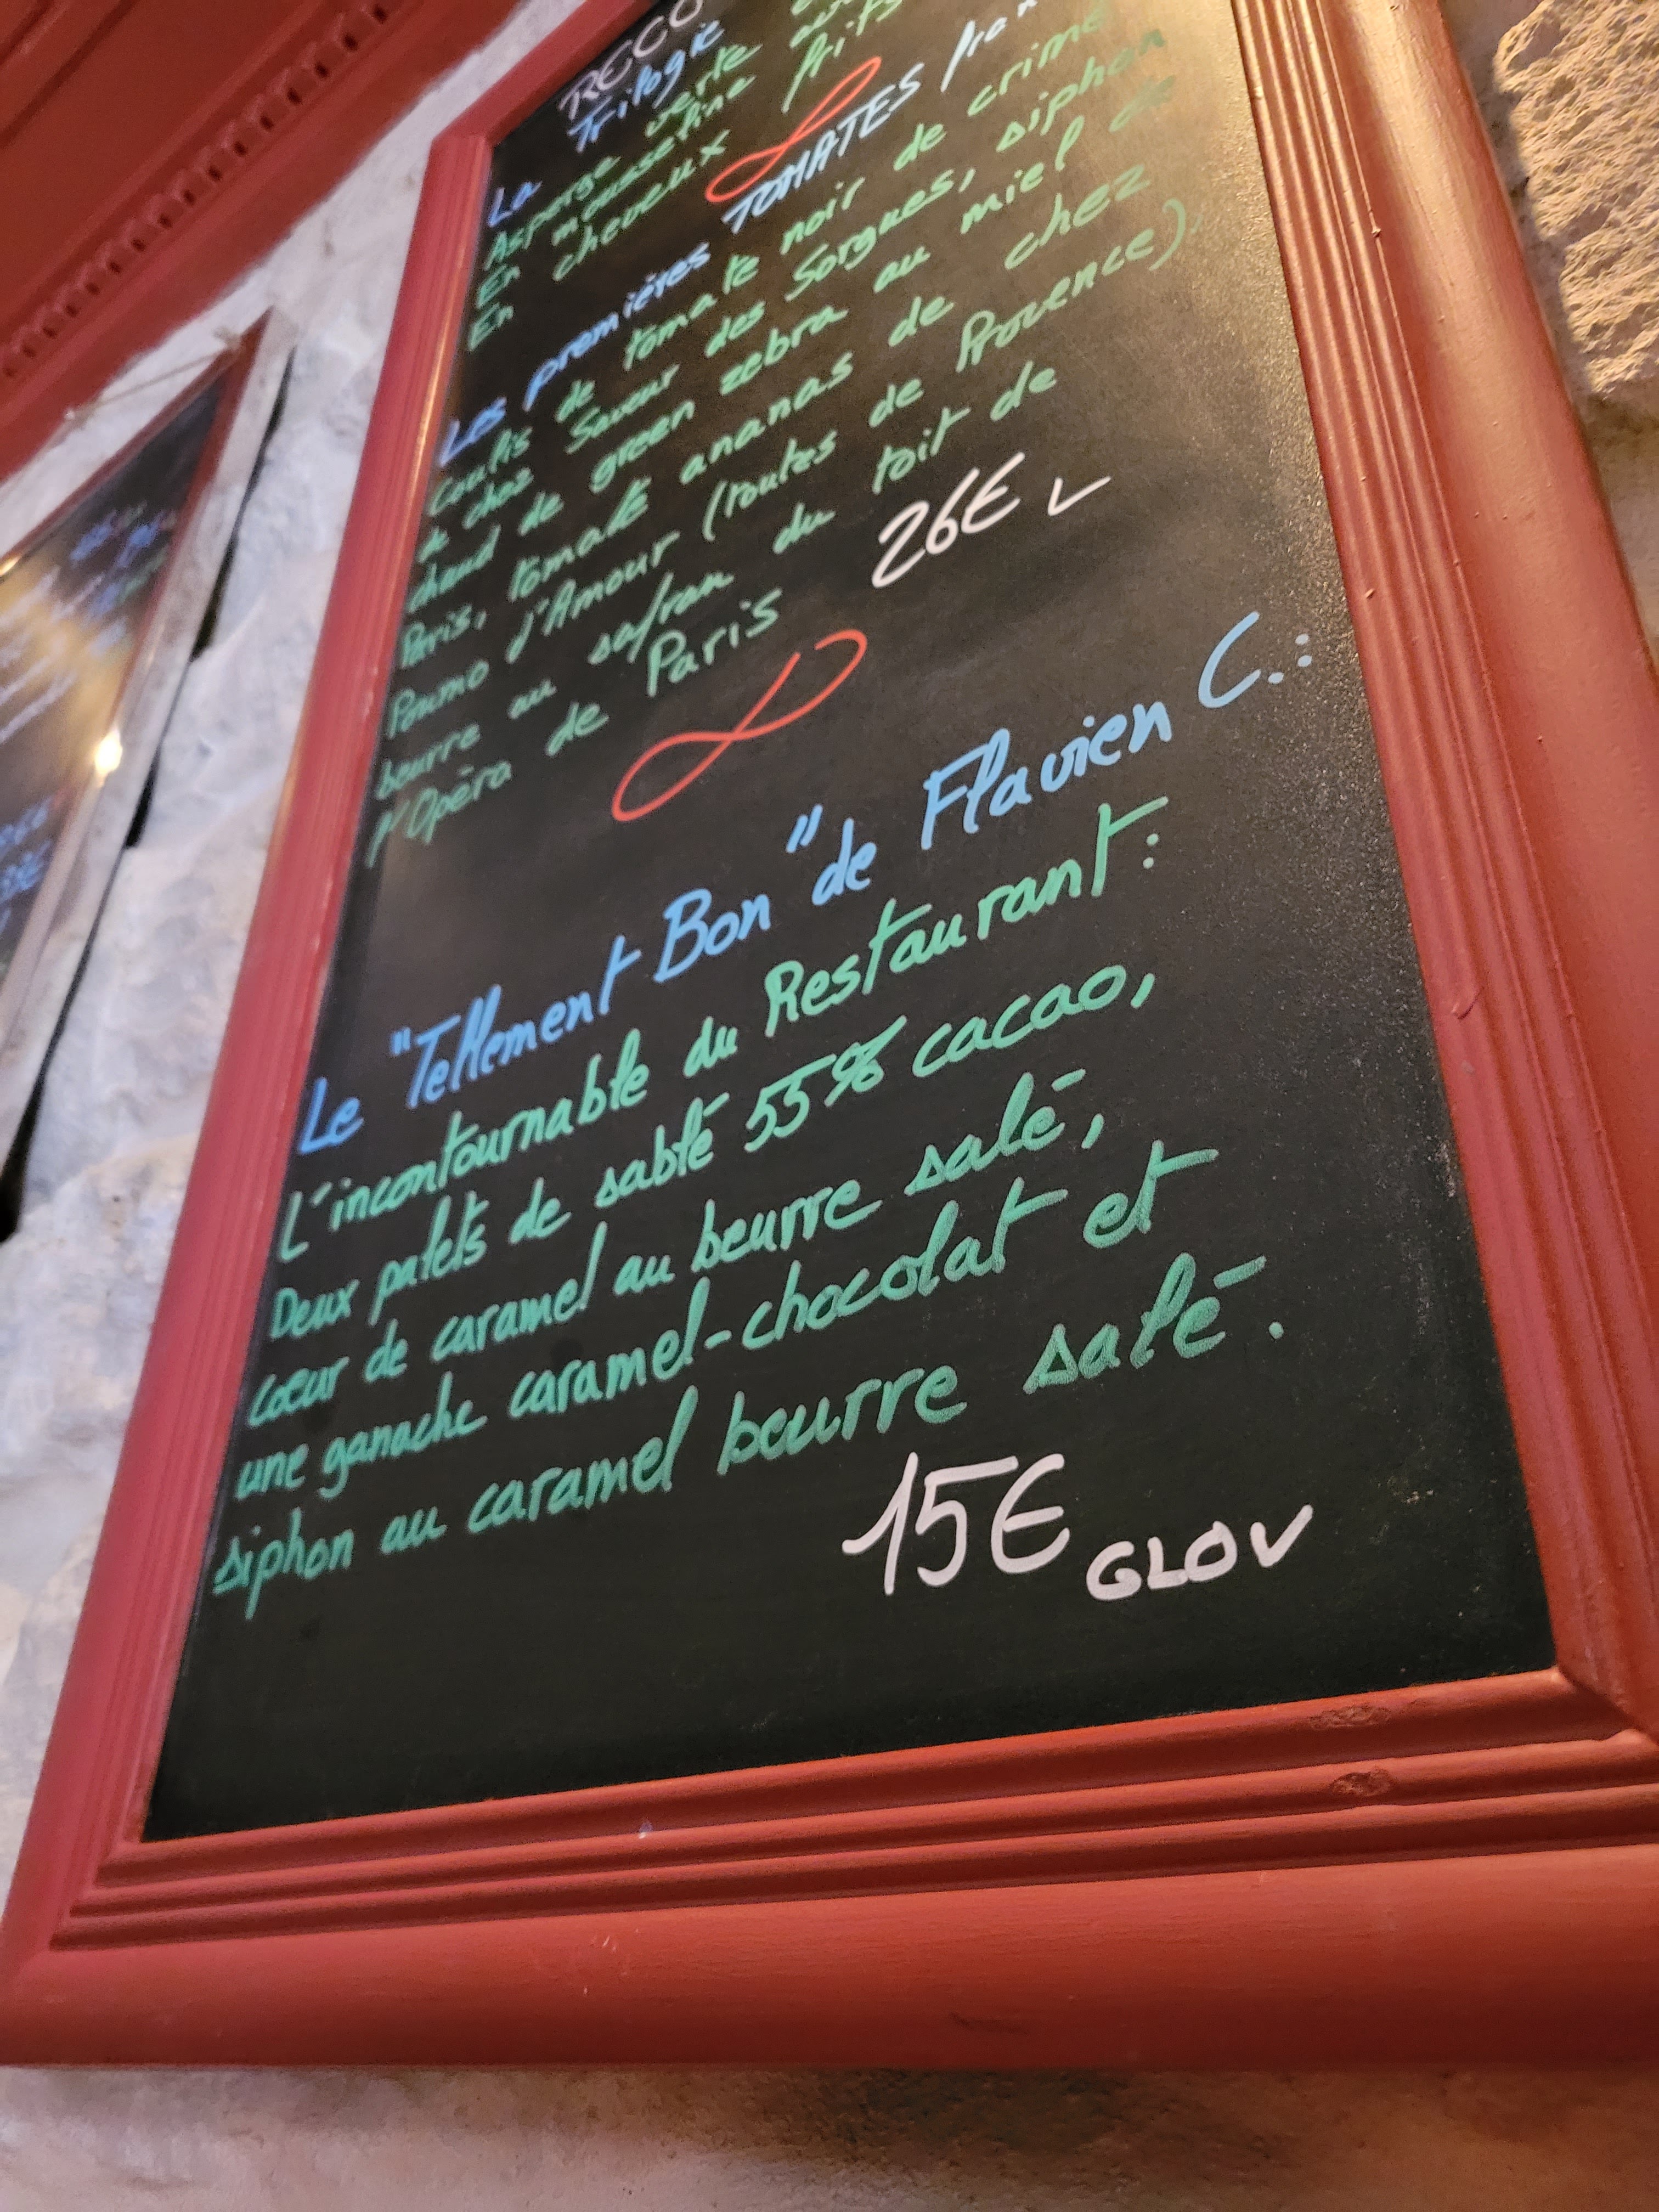 RECO
La Trilogie
Asperge verte
En mousseline
En cheveux frits
Les premières TOMATES
Coulis de tomate noir de crimé
de chez Saveur des Sorgues, siphon
chaud de green zebra au miel de
Paris, tomate ananas de chez
Poumo d'Amour (toutes de Provence).
beurre au safran du toit de
l'Opéra de Paris
26€ L
Le "Tellement Bon" de Flavien C.:
L'incontournable du Restaurant:
Deux palets de sablé 55% cacao,
cœur de caramel au beurre salé,
une ganache caramel-chocolat et
siphon au caramel beurre salé.
15€ GLOV